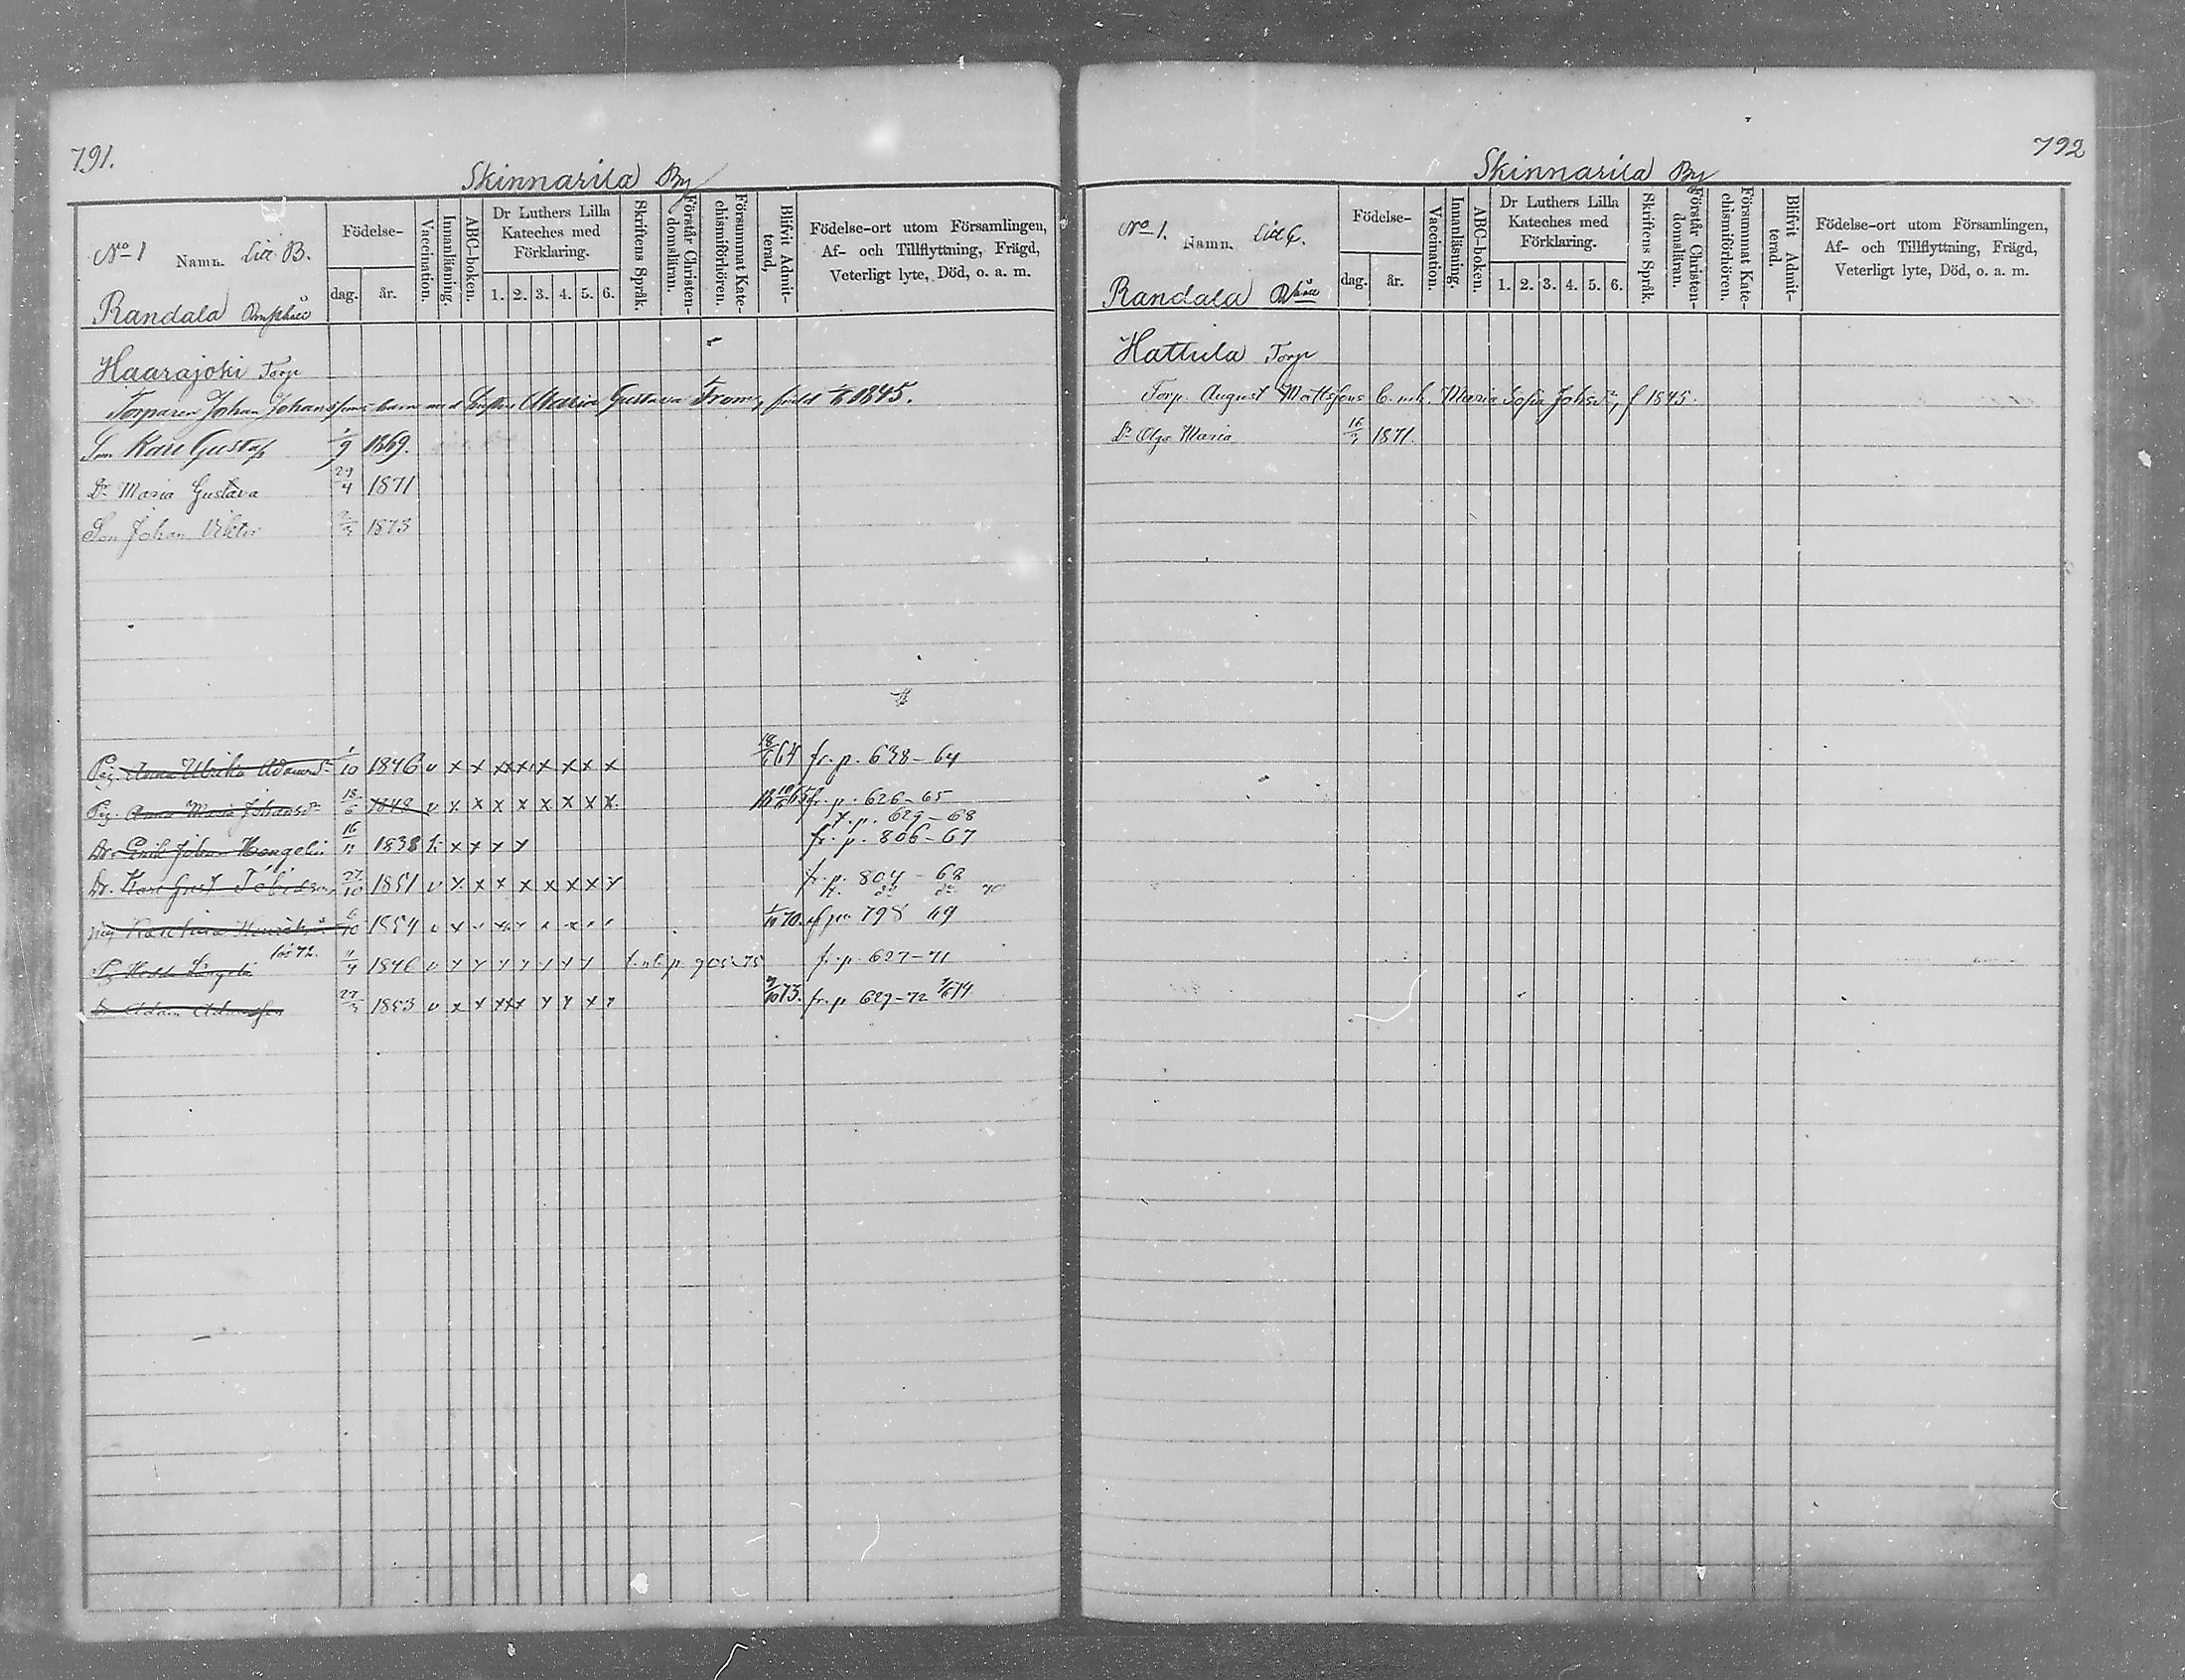 791.
Skinnarila By
No 1 Namn. Litt B.
Födelse-
dag. år.
Vaccination.
Innanläsning.
ABC-boken.
Dr Luthers Lilla Kateches med Förklaring.
1. 2. 3. 4. 5. 6.
Skriftens Språk.
Förstår Christen-domsläran.
Försummat Kate-chismiförhören.
Blifvit Admit-terad,
Födelse-ort utom Församlingen,
Af- och Tillflyttning, Frägd,
Veterligt lyte, Död, o. a. m.
Randala
Haarajoki Torp
Torparen Johan Johanssons barn med hustru Maria Gustava From, född 1845.
Son Karl Gustaf 1/9 1869.
Dr Maria Gustava 29/4 1871
Son Johan Viktor 2/3 1873
Pig. Anna Ulrika Adamsdr 1/10 1846 v x x x x x x x x 18/6 64 fr. p. 638-64
Pig. Anna Maria Johansdr 18/6 1848 v x x x x x x x x fr. p. 626-65
t. p. 629-68
Dr. Emil Johan 16/11 1838 x x x x fr. p. 806-67
Dr. Karl Gust 27/10 1851 v x x x x x x x x fr. p. 804-68
t. do do 70
Karolina 6/10 1854 v x 1/10 70. p. 798 69
1846 v x x x x x x x p 905-75 fr. p. 627-71
Dr Adam Adamsson 27/3 1853 v x x x x x x x x 73. fr. p 629-72
792
Skinnarila By
No 1. Namn. Litt C.
Födelse-
dag. år.
Vaccination.
Innanläsning.
ABC-boken.
Dr Luthers Lilla Kateches med Förklaring.
1. 2. 3. 4. 5. 6.
Skriftens Språk.
Förstår Christen-domsläran.
Försummat Kate-chismiförhören.
Blifvit Admit-terad.
Födelse-ort utom Församlingen,
Af- och Tillflyttning, Frägd,
Veterligt lyte, Död, o. a. m.
Randala
Hattula Torp
Torp. August Mattssons b. m. h. Maria Sofia Johsdr, f 1845.
Dr Olga Maria 16/7 1871.